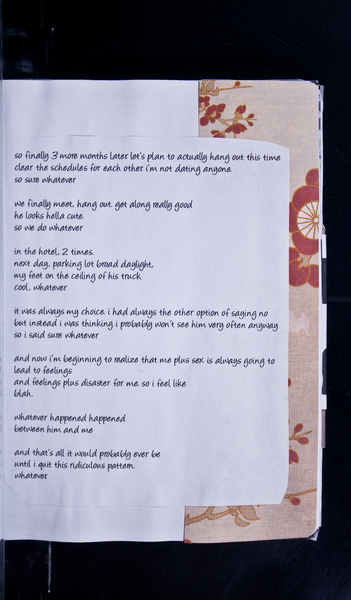 so finally 3 more months later let's plan to actually hang out this time
clear the schedules for each other i'm not dating anyone.
so sure whatever
we finally meet, hang out. get along really good
he looks hella cute.
so we do whatever
in the hotel, 2 times.
next day, parking lot broad daylight,
my feet on the ceiling of his truck
cool, whatever
it was always my choice. i had always the other option of saying no
but instead i was thinking i probably won't see him very often anyway
so i said sure whatever
and now i'm beginning to realize that me plus sex is always going to
lead to feelings
and feelings plus disaster for me. so i feel like
blah.
whatever happened happened
between him and me
and that's all it would probably ever be
until i quit this ridiculous pattern.
whatever